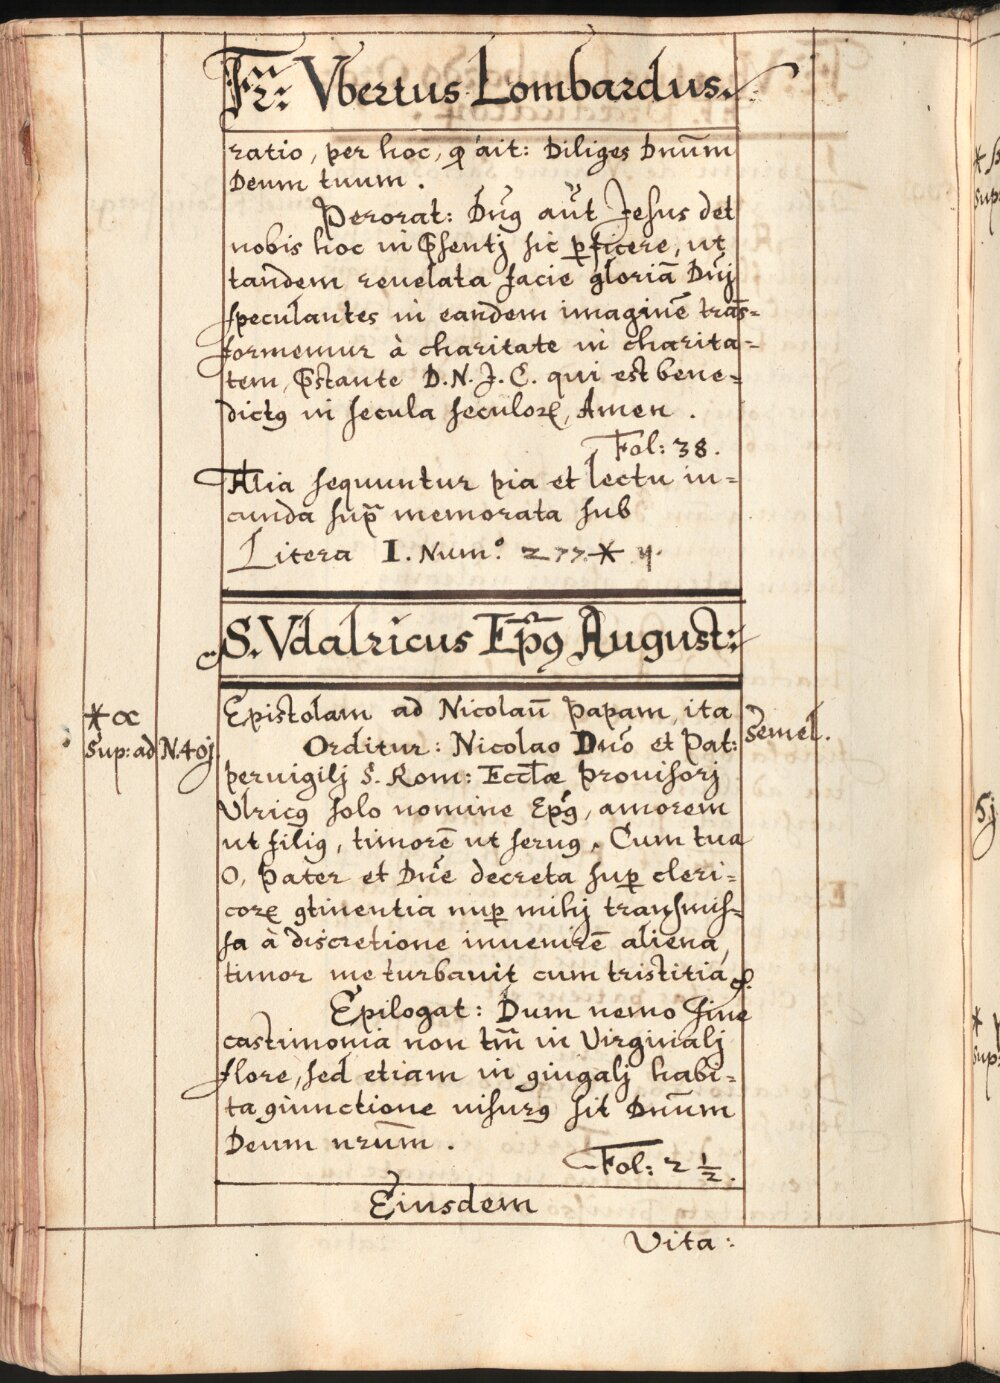 Fr: Vbertus Lombardus.
ratio, per hoc, ꝙ ait: Diliges Dnūm
Deum tuum.
Perorat: Dn̄ꝯ aūt Jesus det
nobis hoc in p̄sentj sic ꝑficere, ut
tandem reuelata facie gloriā Dn̄j
speculantes in eandem imaginē trās=
formemur à charitate in charita=
tem, p̄stante D.N.J.C. qui est bene=
dictꝯ in secula seculoꝝ, Amen.
Fol: 38.
Alia sequuntur pia et lectu iu=
cunda supͣ memorata sub
Litera I. Num.º 277.* y.
S. Vdalricus Ep̄ꝯ August:
Epistolam ad Nicolaū papam, ita
Semel.
*α
Sup: ad N.40j.
Orditur: Nicolao Dn̄o et Pat:
peruigilj S. Rom: Eccłæ prouisorj
Vlricꝯ solo nomine Ep̄ꝯ, amorem
ut filiꝯ, timorē ut seruꝯ. Cum tua
O, Pater et Dn̄e decreta suꝑ cleri=
coꝝ ꝯtinentia nuꝑ mihj transmis=
sa à discretione inuenirē aliena,
timor me turbauit cum tristitia, &.
Epilogat: Dum nemo sine
castimonia non tm̄ in Virginalj
flore, sed etiam in ꝯiugalj habi=
ta ꝯiunctione uisurꝯ sit Dnūm
Deum nrūm.
Fol: 2 1/2.
Eiusdem
Vita: